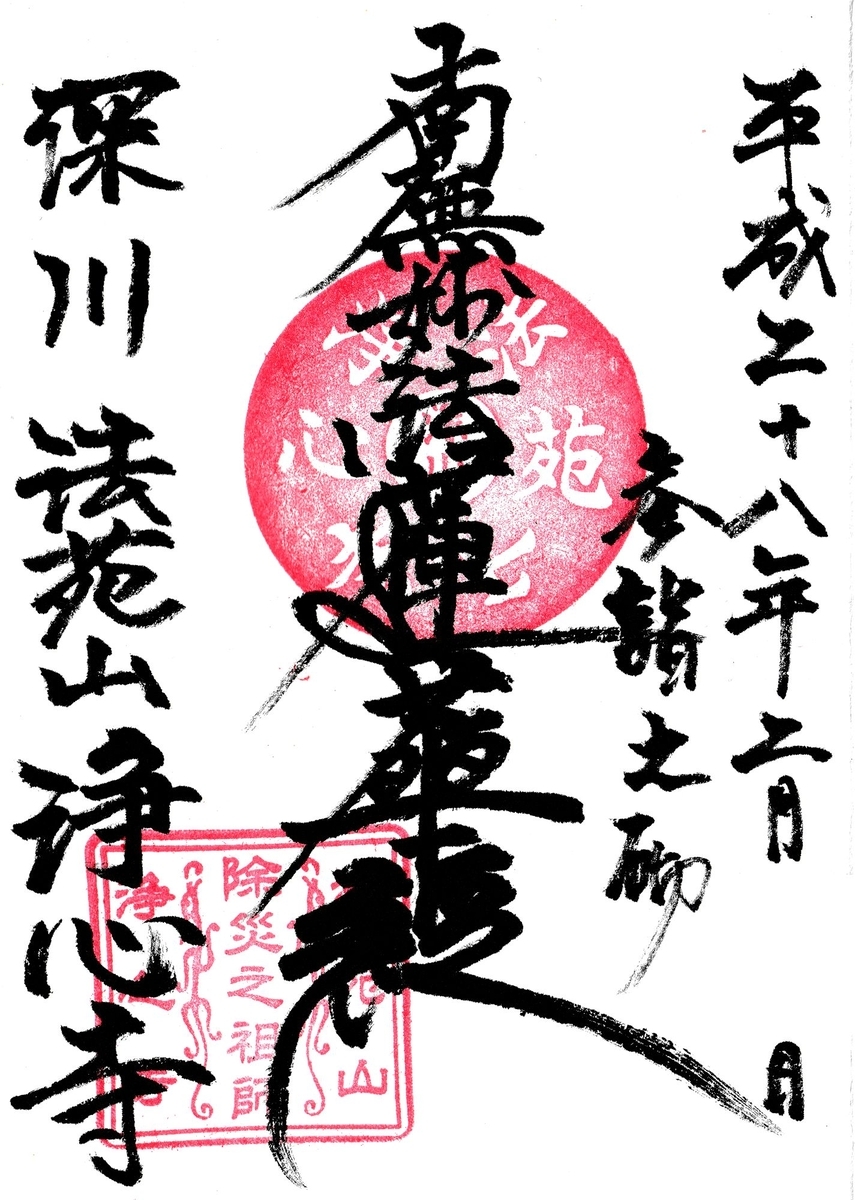 平成二十八年二月 日
参詣之砌
南無妙法蓮華経
深川 法苑山 浄心寺
除災之祖師